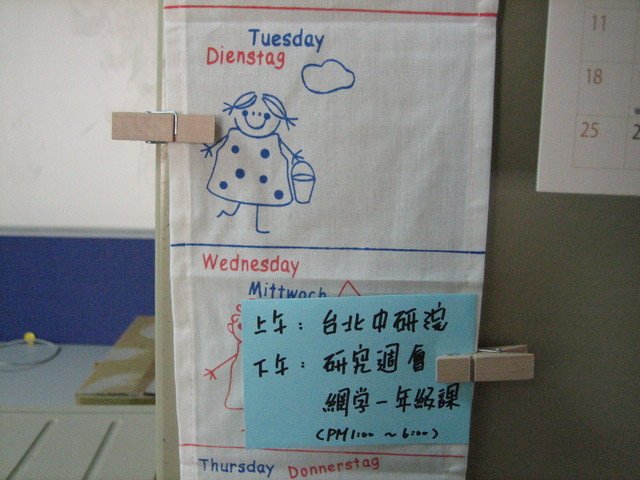 Tuesday
Dienstag
11
18
25
Wednesday
Mittwoch
上午：台北中研院
下午：研究週會
網学一年級課
(PM1:00 ~ 6:00)
Thursday Donnerstag